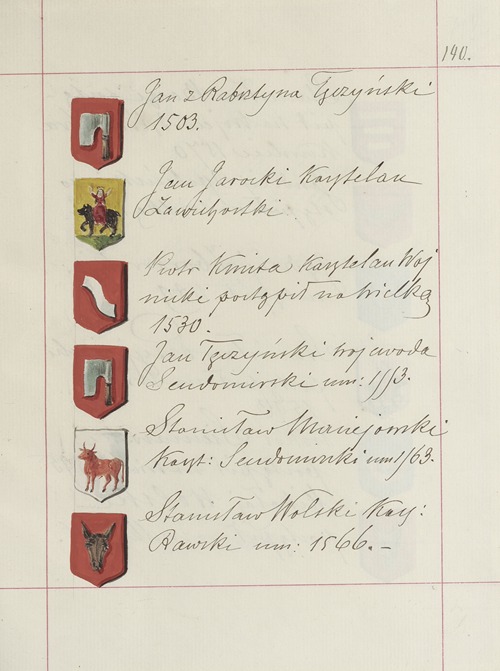 140.
Jan z Rabsztyna Tęczyński
1503.
Jan Jarocki Kasztelan
Zawichostki
Piotr Kmita Kasztelan Woj
nicki postąpił na Wielką
1530.
Jan Tęczyński wojewoda
Sendomirski um: 1553.
Stanisław Maciejowski
Kaszt: Sendomirski um 1563.
Stanisław Wolski Kasz:
Rawski um: 1566. –